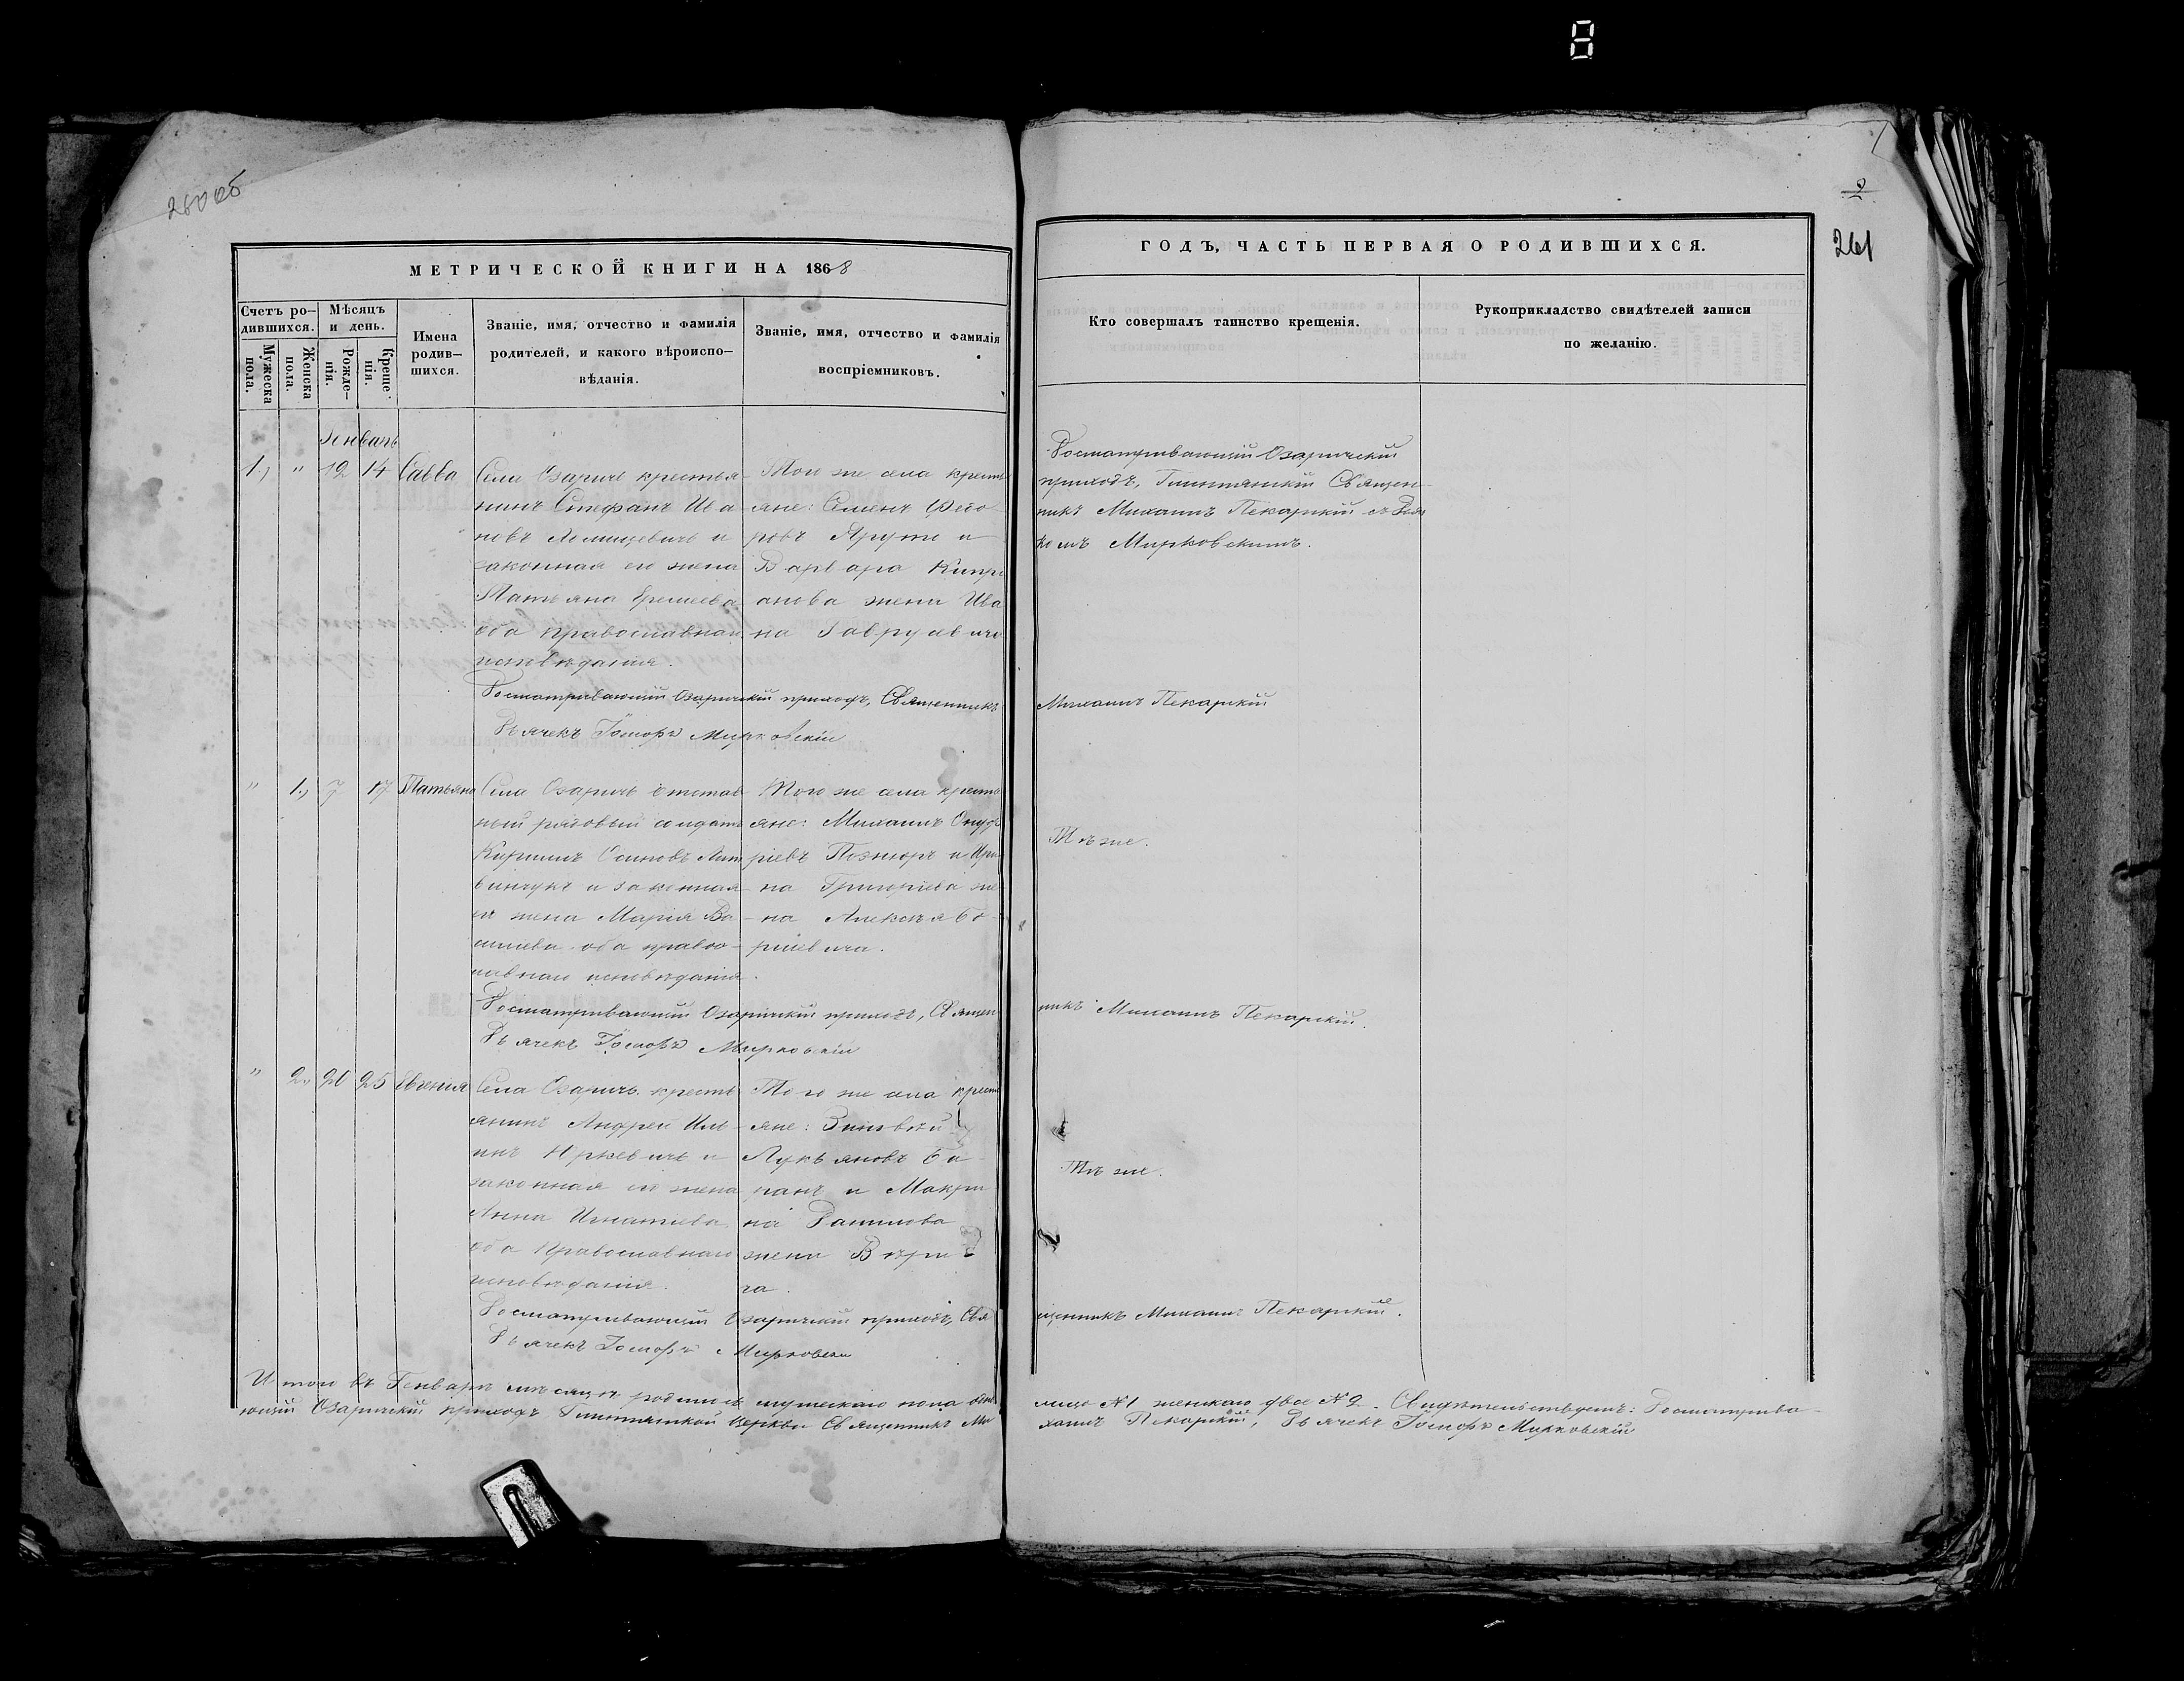 8
260 об
2
261
МЕТРИЧЕСКОЙ КНИГИ НА 1868
ГОДЪ, ЧАСТЬ ПЕРВАЯ О РОДИВШИХСЯ.
Счетъ ро-
дившихся.
Мужеска
пола.
Женска
пола.
Мѣсяцъ
и день.
Рожде-
нія.
Креще-
нія.
Имена
родив-
шихся.
Званіе, имя, отчество и фамилія
родителей, и какого вѣроиспо-
вѣданія.
Званіе, имя, отчество и фамилія
воспріемниковъ.
Кто совершалъ таинство крещенія.
Рукоприкладство свидѣтелей записи
по желанію.
Январь
1., " 12 14 Савва
Села Озаричъ крестья-
нинъ Стефанъ Ива-
новъ и
законная его жена
Татьяна
оба православнаго
исповѣданія.
Того же села кресть-
яне: Семенъ Ѳедо-
ровъ Ярута и
Варвара Кипри-
анова жена Ива-
на
Досматривающій Озаричскій
приходъ, Священ-
никъ Михаилъ Пекарскій съ Дья-
комъ Мирковскимъ.
Досматривающій Озаричскій приходъ, Священникъ Михаилъ Пекарскій
Дьячекъ Іосифъ Мирковскій
" 1., 7 17 Татьяна
Села Озаричъ отстав-
ный рядовый солдатъ
Кириллъ Осиповъ Лит-
винчукъ и законная
его жена Марія Ва-
сильева оба правос-
лавнаго исповѣданія.
Того же села кресть-
яне: Михаилъ Онуф-
ріевъ и Ири-
на Григоріева же-
на Алексѣя Бо-
рисевича.
Тѣ же.
Досматривающій Озаричскій приходъ, Священникъ Михаилъ Пекарскій.
Дьячекъ Іосифъ Мирковскій
" 2., 20 25 Евгенія
Села Озаричъ кресть-
янинъ Андрей Иль-
инъ Юркевичъ и
законная его жена
Анна Игнатьева
оба Православнаго
исповѣданія.
Того же села кресть-
яне: Зиновій
Лукьяновъ Ба-
ранъ и Макри-
на Данилова
жена
ча.
Тѣ же.
Досматривающій Озаричскій приходъ, Священникъ Михаилъ Пекарскій.
Дьячекъ Іосифъ Мирковскій
Итого въ Генварѣ мѣсяцѣ родилось мужескаго пола одно лицо №1 женскаго два №2. Свидѣтельствуемъ: Досматрива-
ющій Озаричскій приходъ церкви Священникъ Михаилъ Пекарскій, Дьячекъ Іосифъ Мирковскій